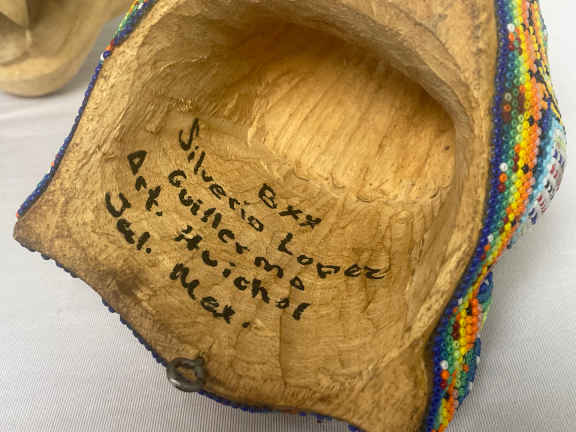 Bxx
Silverio Lopez
Guillermo
Art. Huichol
Jal. Mex.